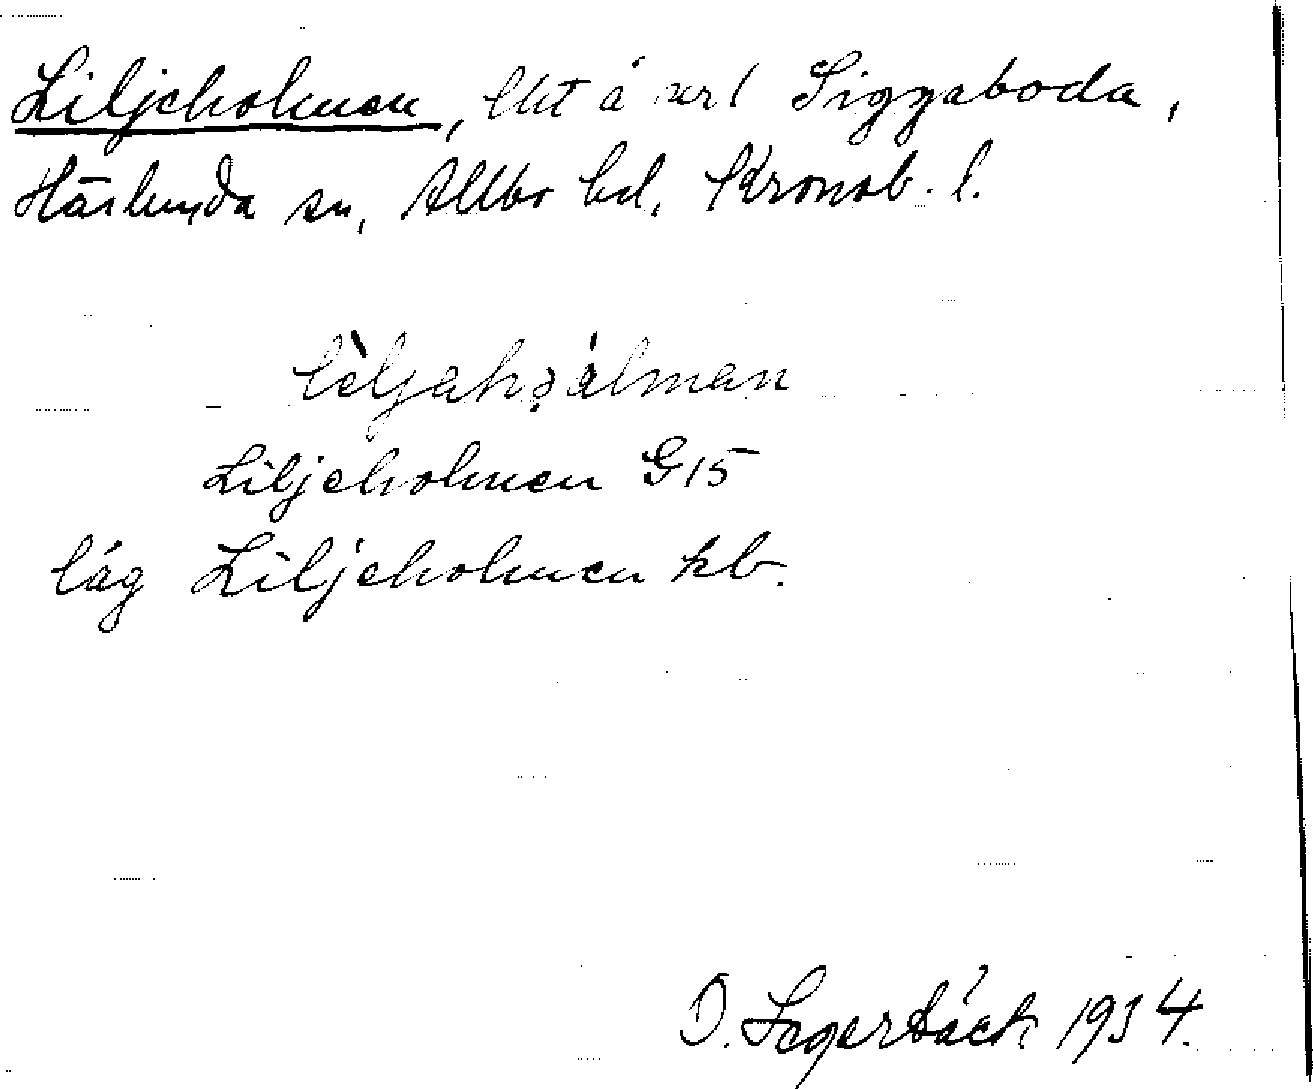 Liljeholmen, lht å url Siggaboda,
Härlunda sn, Allbo hd, Kronob. l.
Liljeholmen G15
låg Liljeholmen kb.
O. Segerbäck 1934.